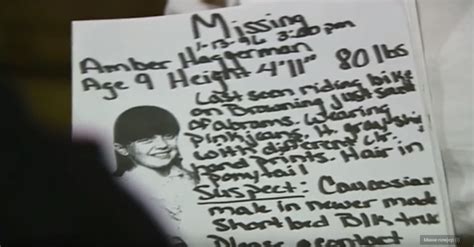 Missing
1-13-96 3:00 pm
Amber Hagerman
Age 9 Height 4'11" 80 lbs
Last seen riding bike
on Browning just east
of abrams. Wearing
pink jeans. lt gray shirt
with different clr
hand prints. Hair in
Ponytail
Suspect: Caucasian
male in newer model
Short bed Blk truk
Please contact